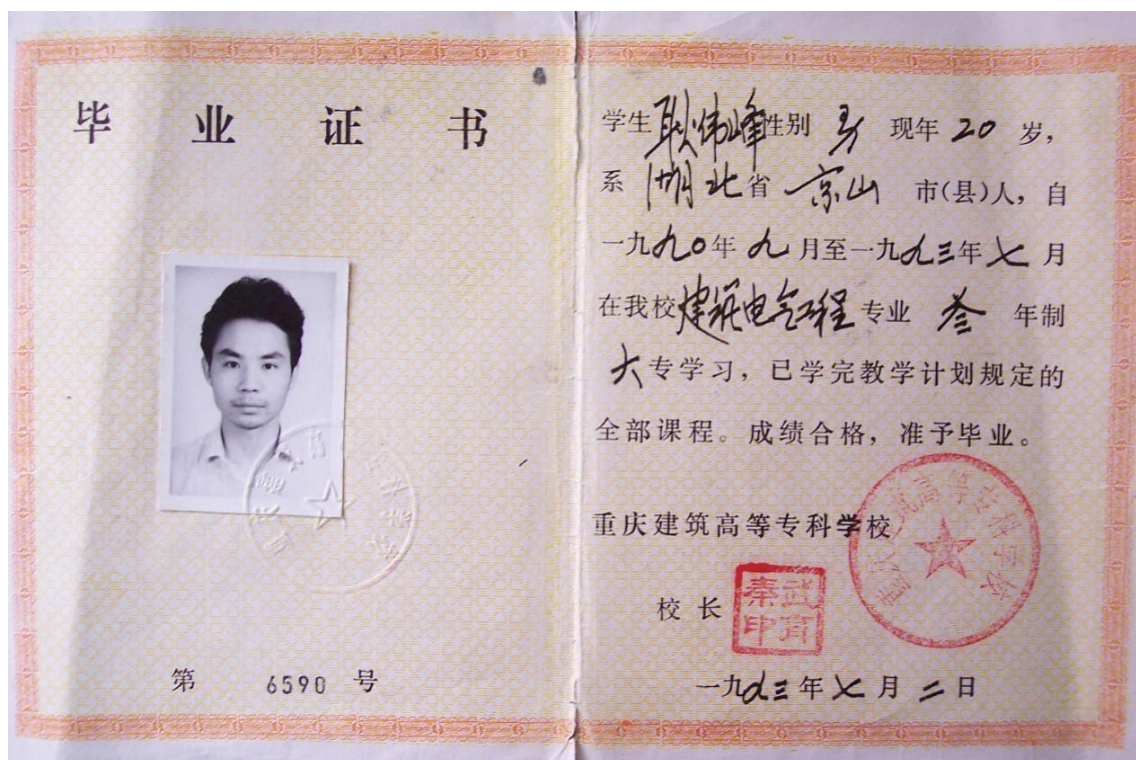 毕业证书
第 6590 号
学生 耿伟峰 性别 男 现年 20 岁，
系 湖北省 京山 市(县)人，自
一九九0年九月至一九九三年七月
在我校建筑电气工程专业 叁 年制
大专学习，已学完教学计划规定的
全部课程。成绩合格，准予毕业。
重庆建筑高等专科学校
重庆建筑高等专科学校
校长
一九九三年七月二日